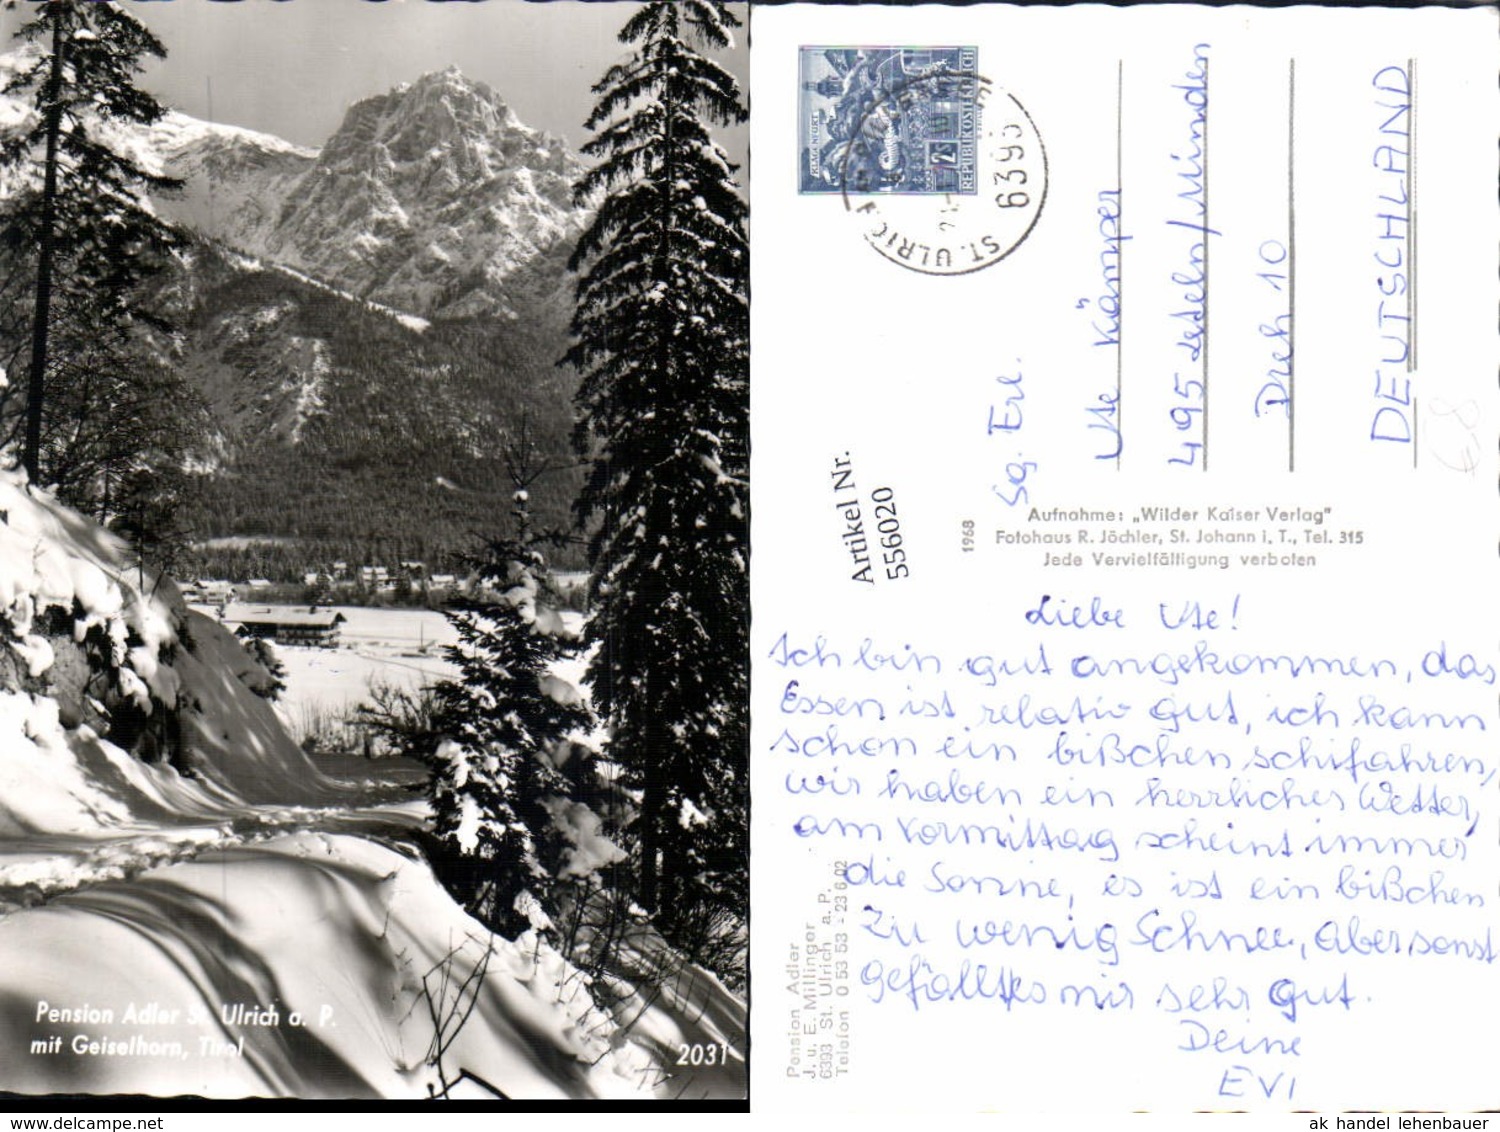 Pension Adler St. Ulrich a. P.
mit Geiselhorn, Tirol
2031
KLAGENFURT
2
REPUBLIK ÖSTERREICH
6393
ST. ULRICH
Sg. Frl.
Ute Kämper
495 /Minden
10
DEUTSCHLAND
€8
Artikel Nr.
556020
1968
Aufnahme: „Wilder Kaiser Verlag"
Fotohaus R. Jöchler, St. Johann i. T., Tel. 315
Jede Vervielfältigung verboten
Liebe Ute!
Ich bin gut angekommen, das
Essen ist relativ gut, ich kann
schon ein bißchen schifahren,
wir haben ein herrliches Wetter,
am Vormittag scheint immer
die Sonne, es ist ein bißchen
zu wenig Schnee, aber sonst
gefällt es mir sehr gut.
Deine
EVI
Pension Adler
J. u. E. Millinger
6393 St. Ulrich a. P.
Telefon 0 53 53 - 23 6 02
ak handel lehenbauer